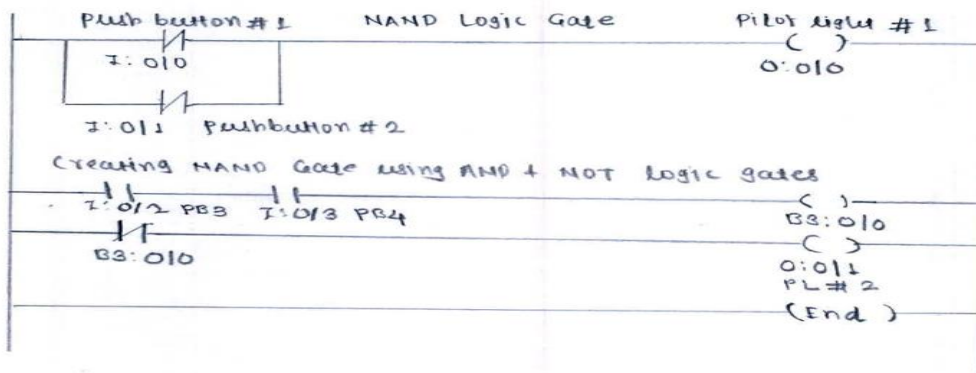 Push button #1 NAND Logic Gate Pilot light #1
I:0/0 O:0/0
I:0/1 Pushbutton #2
Creating NAND Gate using AND & NOT logic gates
I:0/2 PB3 I:0/3 PB4 B3:0/0
B3:0/0 O:0/1
PL #2
(End)